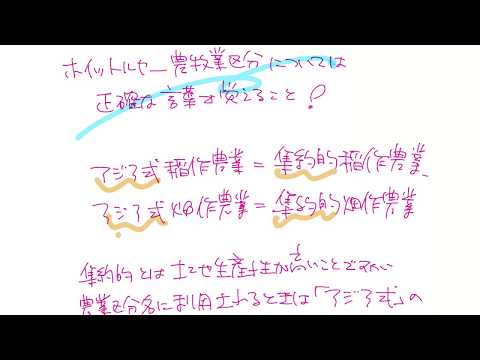 ホイットルセー農牧業区分については
正確な言葉で覚えること！
アジア式稲作農業＝集約的稲作農業、
アジア式畑作農業＝集約的畑作農業
集約的とは土地生産性が高いことですが
農業区分名に利用されるときは「アジア式」の